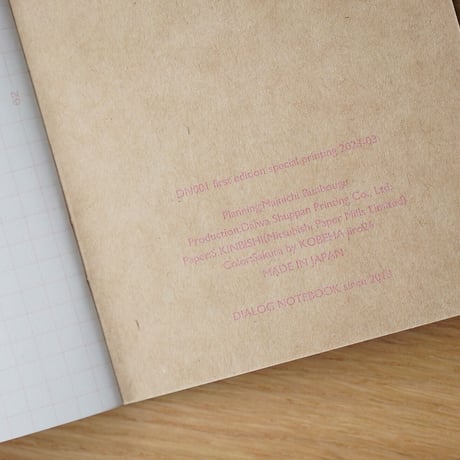 62
DN001 first edition special printing 2024-03
Planning:Mainichi
Production:Daiwa Shuppan Printing Co., Ltd.
Paper:S.KINBISHI(Mitsubishi Paper Mills Limited)
Color:Sakura by KOBEHA
MADE IN JAPAN
DIALOG NOTEBOOK since 2013